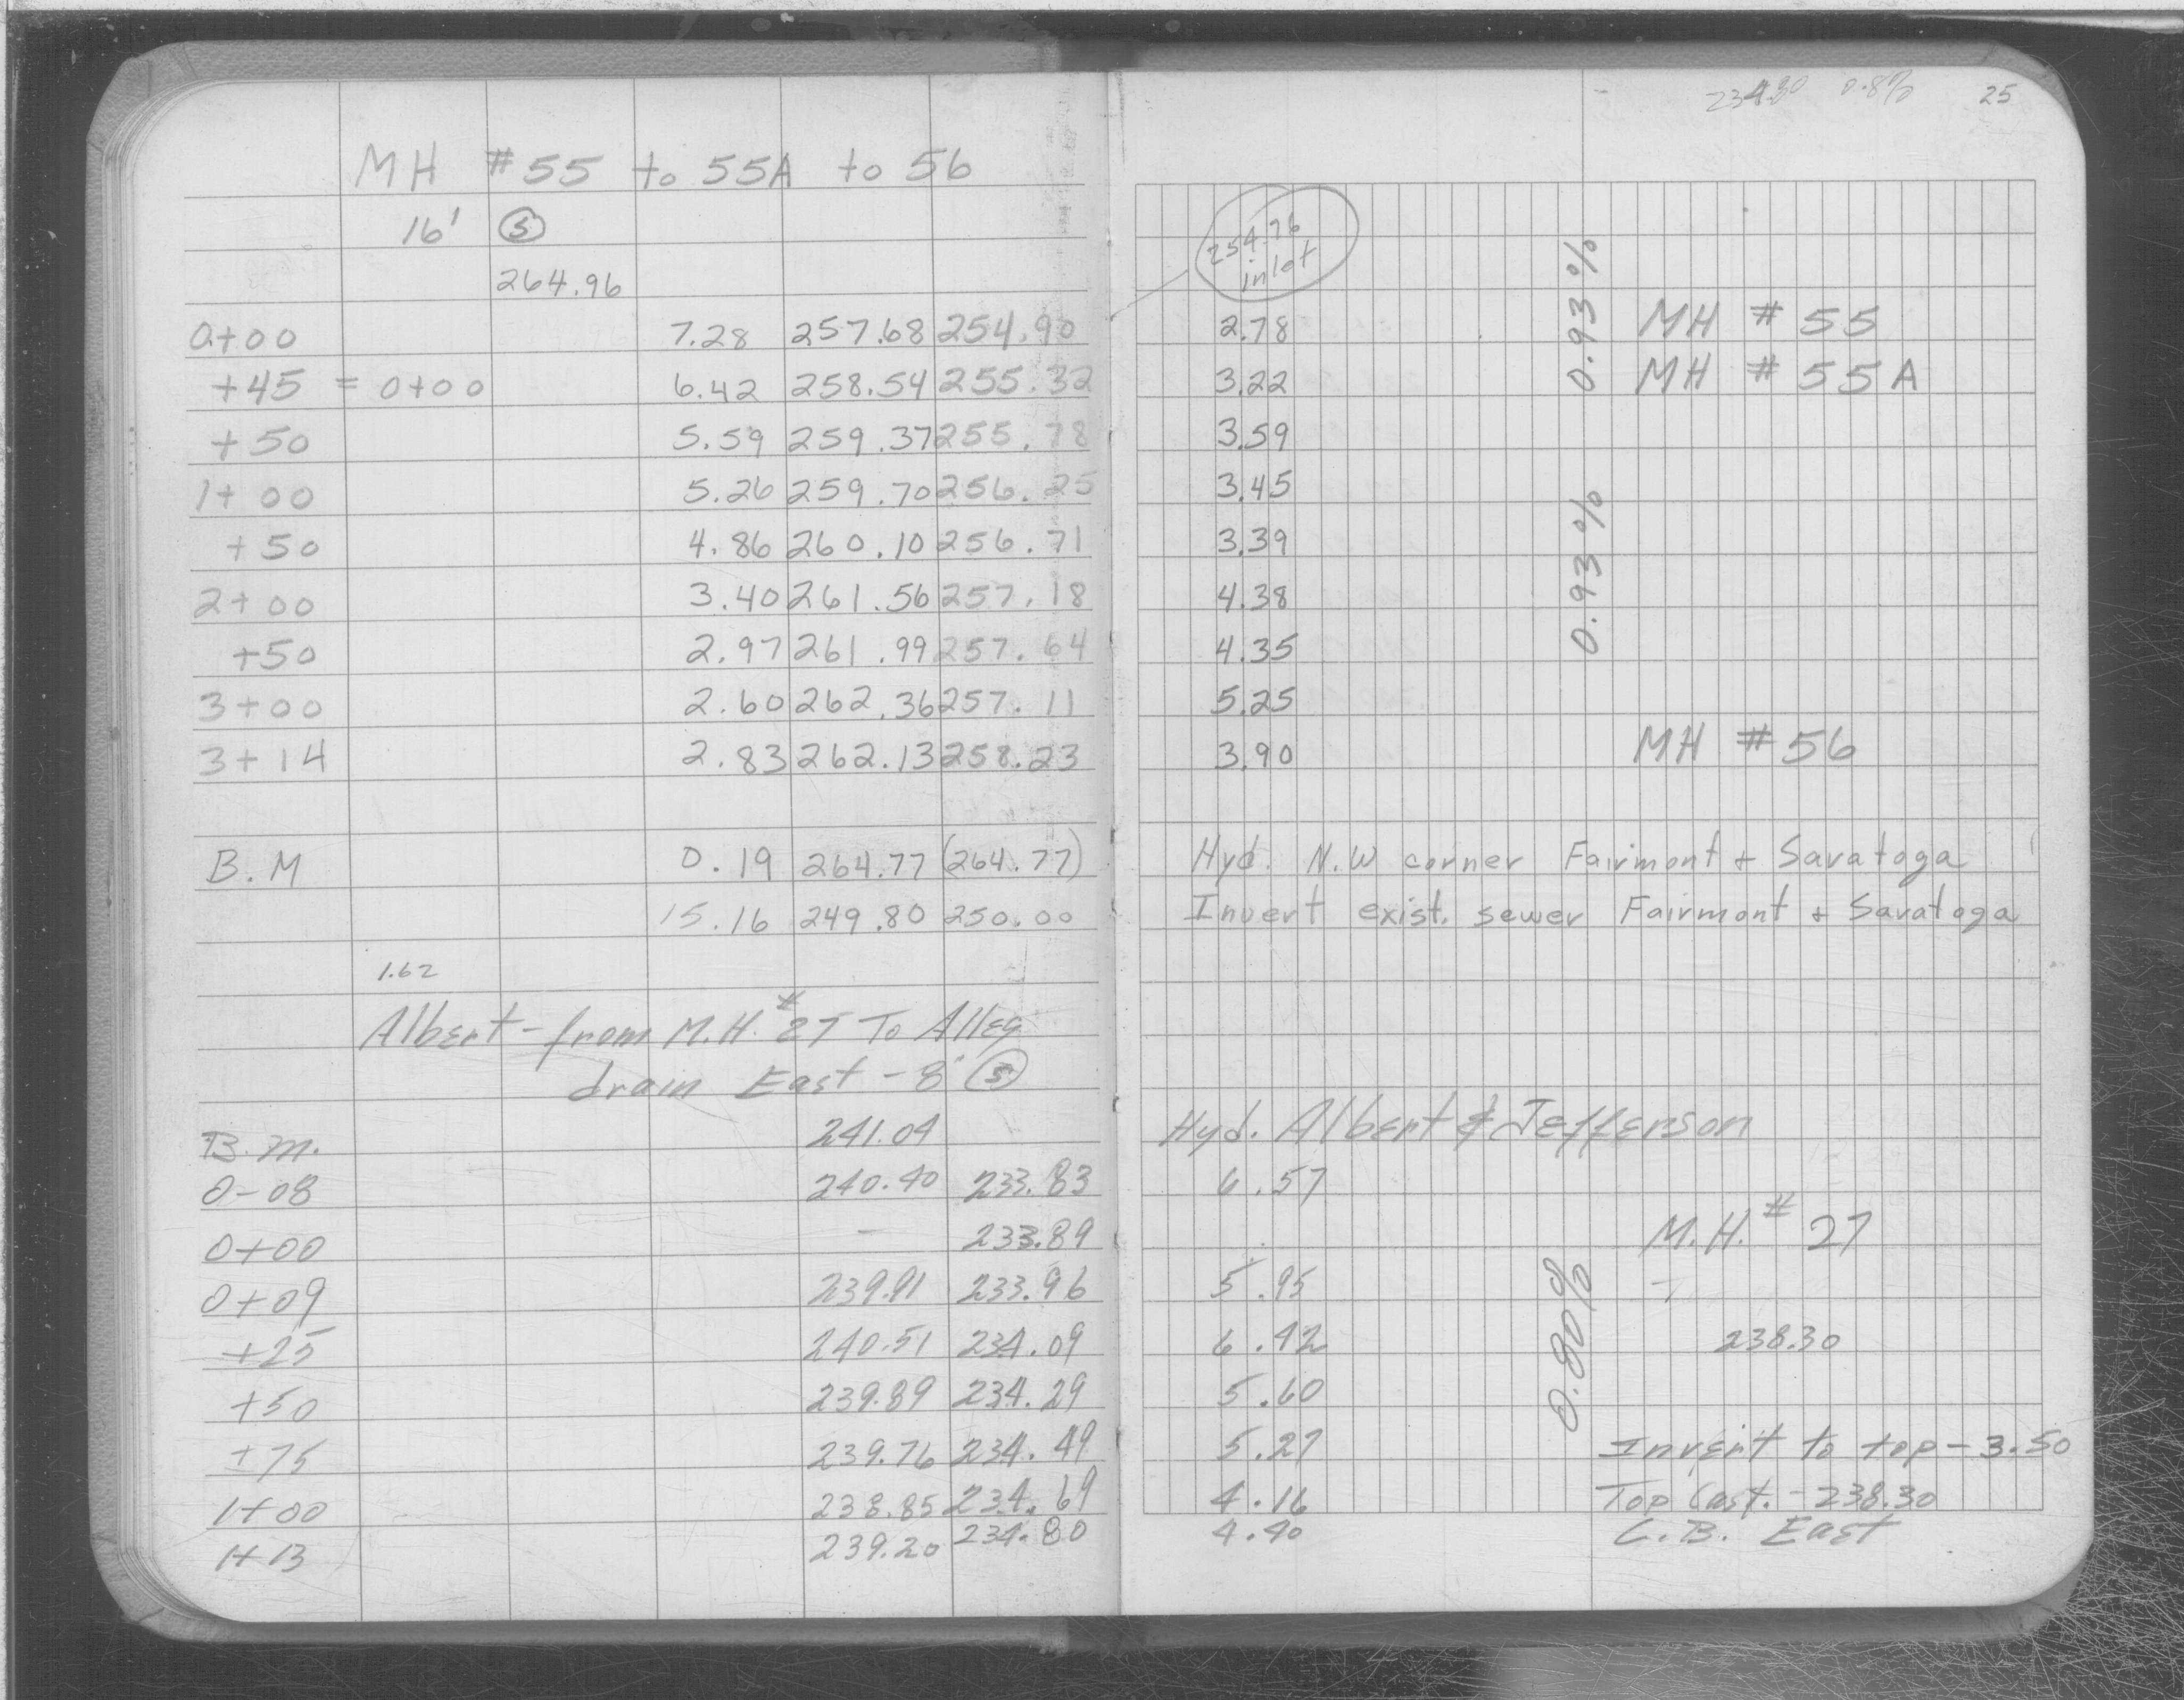 234.30 0.8% 25
MH # 55 to 55A to 56
16' Ⓢ
264.96
254.76
inlet
0+00 7.28 257.68 254.90 2.78 MH # 55
+45 = 0+00 6.42 258.54 255.32 3.22 0.93% MH # 55A
+50 5.59 259.37 255.78 3.59
1+00 5.26 259.70 256.25 3.45
+50 4.86 260.10 256.71 3.39
2+00 3.40 261.56 257.18 4.38 0.93%
+50 2.97 261.99 257.64 4.35
3+00 2.60 262.36 257.11 5.25
3+14 2.83 262.13 258.23 3.90 MH # 56
B.M 0.19 264.77 (264.77) Hyd. N.W corner Fairmont + Saratoga
15.16 249.80 250.00 Invert exist. sewer Fairmont + Saratoga
1.62
Albert - from M.H. # 27 To Alley
drain East - 8" Ⓢ
B.m. 241.04 Hyd. Albert & Jefferson
0-08 240.40 233.83 6.57
0+00 - 233.89 M.H. # 27
0+09 239.91 233.96 5.95
+25 240.51 234.09 6.42 0.80% 238.30
+50 239.89 234.29 5.60
+75 239.76 234.49 5.27 Invert to top - 3.50
1+00 238.85 234.69 4.16 Top Cast. - 238.30
1+13 239.20 234.80 4.40 C.B. East